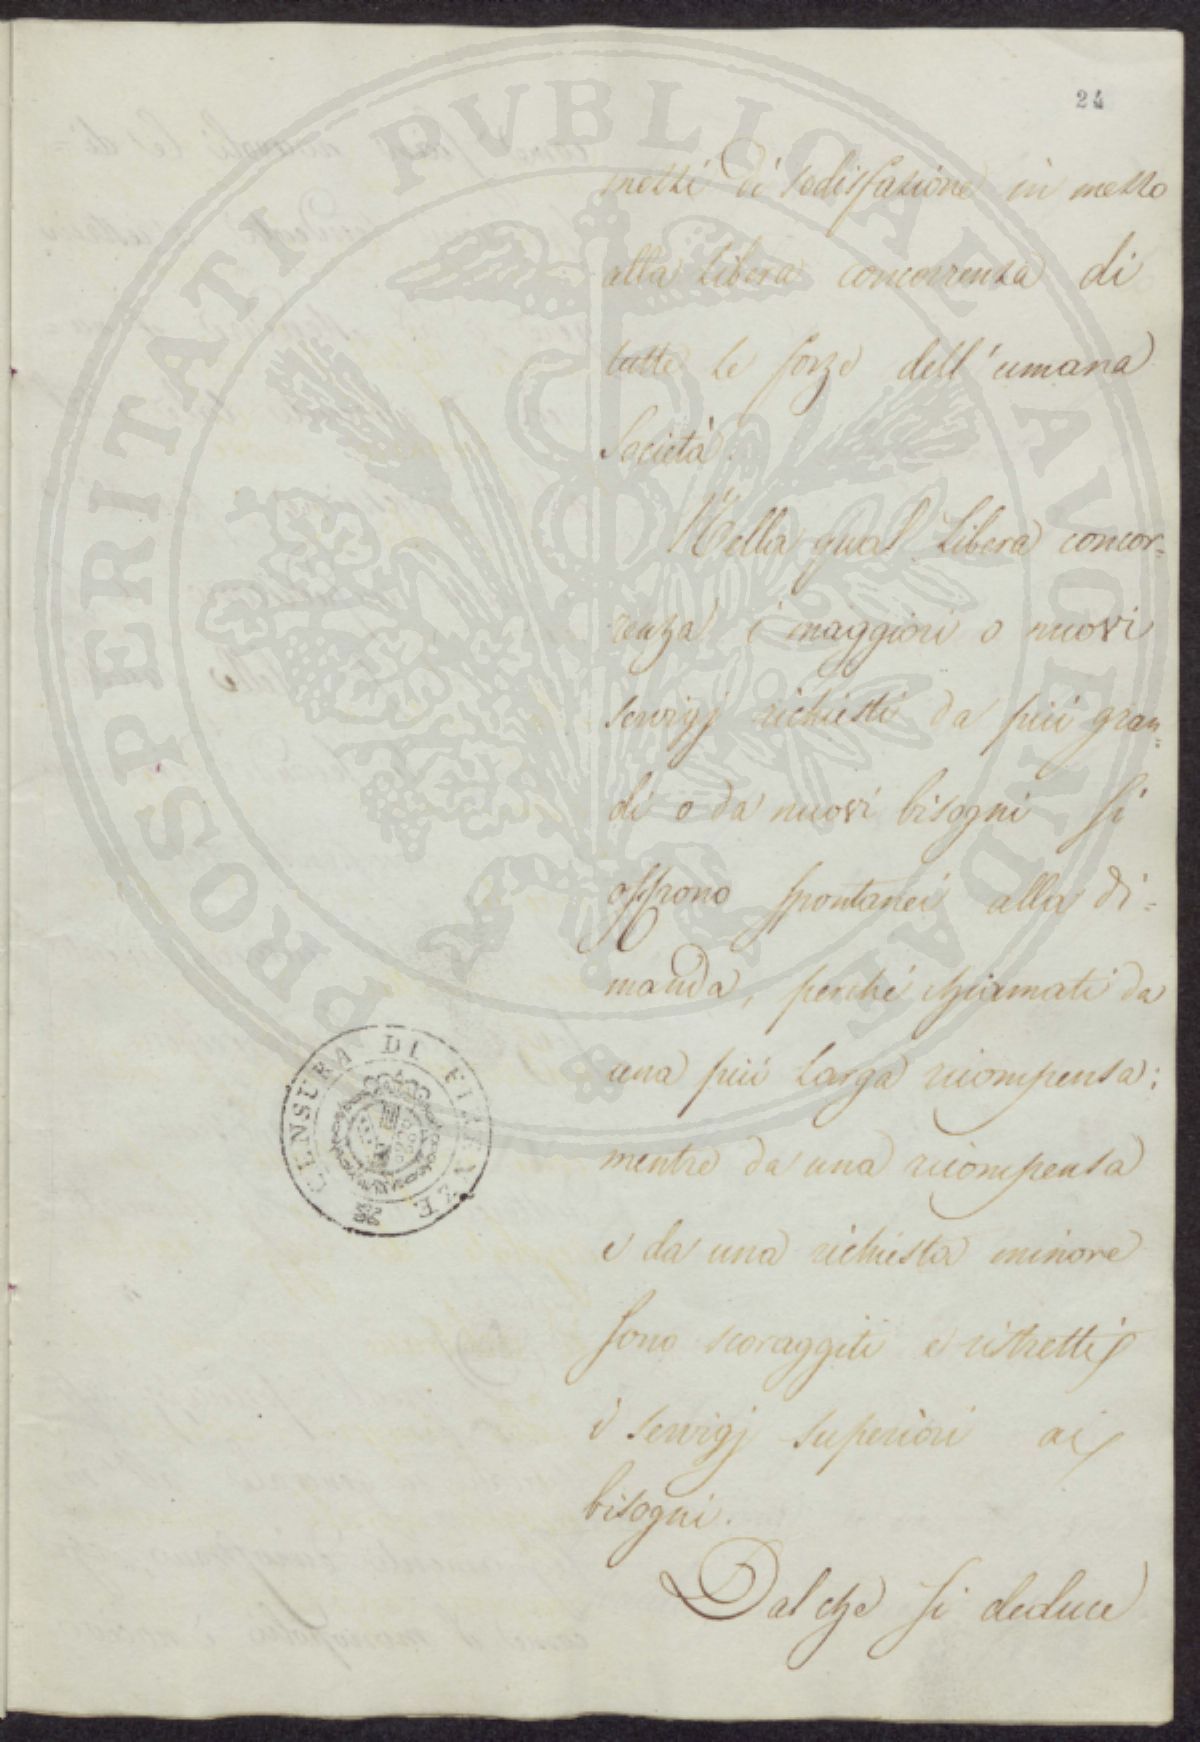 24
mezzi di sodisfazione in mezzo
alla libera concorrenza di
tutte le forze dell'umana
Società.
Nella qual libera concor=
renza i maggiori o nuovi
servigj richiesti da più gran=
di o da nuovi bisogni si
offrono spontanei alla di=
manda, perchè chiamati da
una più larga ricompensa:
mentre da una ricompensa
e da una richiesta minore
sono scoraggiti e ristretti
i servigj superiori ai
bisogni.
Dal che si deduce
CENSURA DI FIRENZE
PROSPERITATI PVBLICAE AVGENDAE